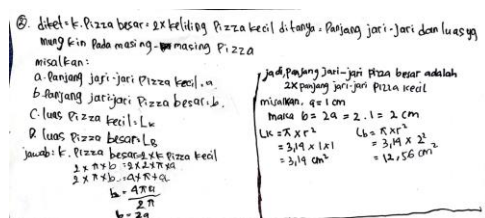 ②. diket = k. Pizza besar = 2x keliling Pizza kecil ditanya = Panjang jari-jari dan luas yg
mungkin Pada masing-masing Pizza
misalkan:
a. Panjang jari-jari Pizza kecil = a
b. Panjang jari jari Pizza besar = b
C. luas Pizza kecil = Lk
D. luas Pizza besar = LB
jawab: k. Pizza besar = 2xk Pizza kecil
2 x π x b = 2x2xπxa
2 x π x b = 4xπxa
b = 4πa
2π
b = 2a
jadi, Panjang Jari-jari Pizza besar adalah
2x Panjang jari-jari Pizza kecil
misalkan, a = 1 cm
maka b = 2a = 2.1 = 2 cm
Lk = π x r²
= 3,14 x 1 x 1
= 3,14 cm²
Lb = π x r²
= 3,14 x 2²
= 12,56 cm²